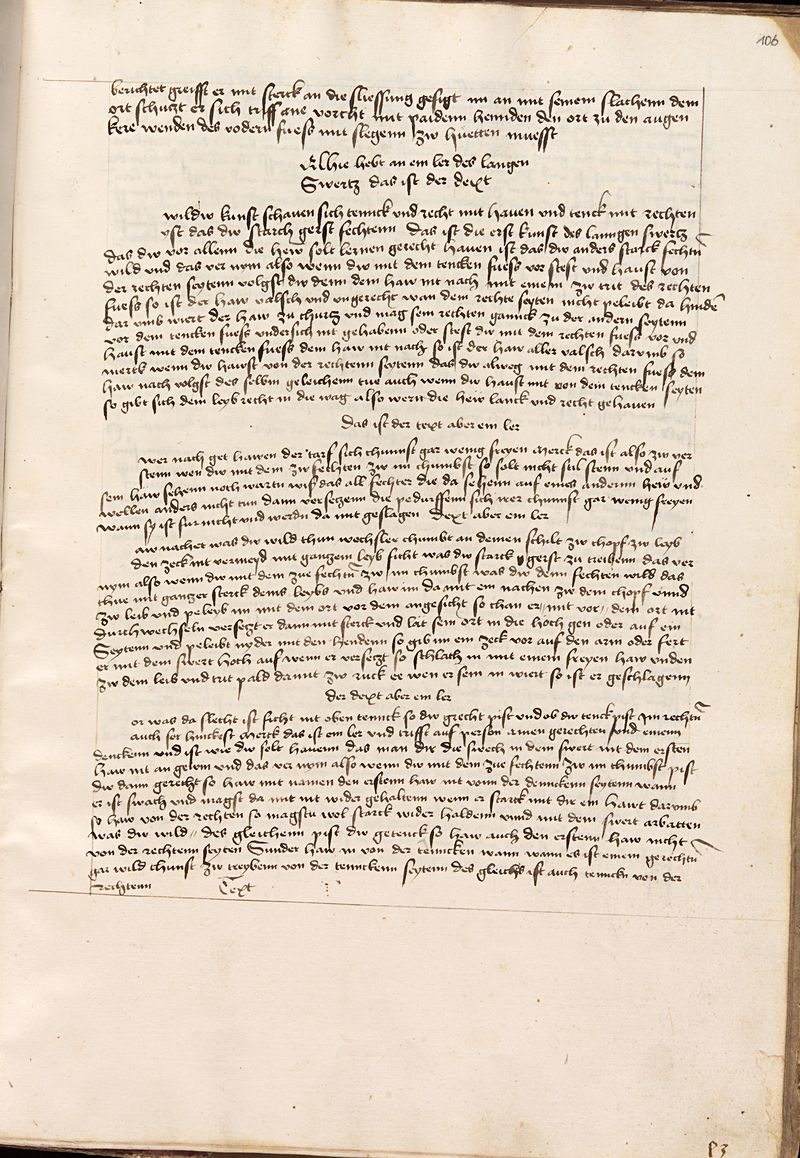 106
berichtet greifft er mit sterck an die sliessung gesigt im an mit seinem slachenn dem
ort schuczt er sich triff ane vorcht mit paidenn hennden den ort zu den augen
kere wenden des vodern fuess mit slegenn zw huetten muesst
Alhie hebt an ein ler des langen
Swertz das ist der dext
wildw kunst schauen sich tennck vnd recht mit hauen vnd tenck mit rechten
yst das dw starch gerst fechtenn Das ist die erst kunst des lanngen swertz
das dw vor allenn die hew solt lernen gerecht hauen ist das dw anders starck fechtn
wild vnd das ver nym also wenn dw mit dem tencken fuess vor stest vnd haust von
der rechten seytenn volgst dw denn dem haw nit nach mit einem zw trit des rechten
fuess so ist der haw valsch vnd vngerecht wan dem rechte seyten nicht peleibt da hinden
dar vmb wiert der haw zu churtz vnd mag sein rechten ganck zu der andern seytenn
vor dem tencken fuess vndersich nit gehabenn oder stest dw mit dem rechten fuess vor vnd
haust mit dem tencken fuess dem haw nit nach so ist der haw aller valsch darumb so
merck wenn dw haust von der rechtenn seytenn das dw alweg mit dem rechten fuess dem
haw nach volgst des selbin geleichenn tue auch wenn dw haust mit von dem tencken seyten
so gibt sich dein leyb recht in die wag also wern die hew lanck vnd recht gehauen
Das ist der text aber ein ler
wer nach get hawen der tarf sich chunst gar wenig freyen Merck das ist also zw ver
stenn wen dw mit dem zw fechten zw im chumbst so solt nicht stil stenn vnd auf
sein haw sehenn noch wartn was das all fechter die da sehenn auf eines anderm hew vnd
wellen anders nicht tun dann versetzenn die pedurffenn sich irer chunst gar wenig freyen
wann sy ist fur nicht vnd werdn da mit geslagen Dext aber ein ler
aw nachet was dw wild thun wechsler chumbt an deinen schilt zw chopf zw leyb
den zeck nit vermeyd mit ganzem leyb ficht was dw starck gerst zu treibenn das ver
nym also wenn dw mit dem zue fechtn zw im chumbst was dw denn fechten wild das
thue mit ganzer sterck deins leybs vnd haw im da mit ein nachen zw dem chopf vnnd
zw leib vnd peleyb im mit dem ort vor dem angesicht so chan er mit vor dem ort nit
durchwechseln versetzt er dann mit sterck vnd lät sein ort in die hoch gen oder auf ein
Seytenn vnd peleibt nyder mit den hendenn so gib im ein zeck vor auf den arm oder fert
er mit dem swert hoch auf wenn er versetzt so schlach in mit einem freyen haw vnden
zw dem leib vnd trit pald damit zw ruck ee wen er sein in wiert so ist er geschlagenn
der dext aber ein ler
or was da slecht ist ficht nit oben tennck so dw grecht pist vnd ob dw tenck pist Im rechtn
auch ser hinckest Merck das ist ein ler vnd trifft auf person einen gerechten vnd einenn
denckenn vnd ist wie dw solt hauenn das man dir die swech in dem swert mit dem ersten
haw nit an gewin vnd das ver nym also wenn dw mit dem zue fechtenn zw im chumbst pist
dw dann gerecht so haw mit namen den erstenn haw nit vonn der dennckenn seytenn wann
er ist swach vnd magst da mit nit wider gehaltenn wenn er starck mit die ein hawt darumb
so haw von der rechten so magstu wol starck wider haldenn vnnd mit dem swert arbaitten
was dw wild des gleichenn pist dw getenck so haw auch den erstenn haw nicht
von der rechtenn seyten Sunder haw in von der tenncken wann wann es ist einem gerechtn
gar wild chunst zw treybenn von der tennckenn seytenn des gleichs ist auch tennckn von der
Rechtenn Text